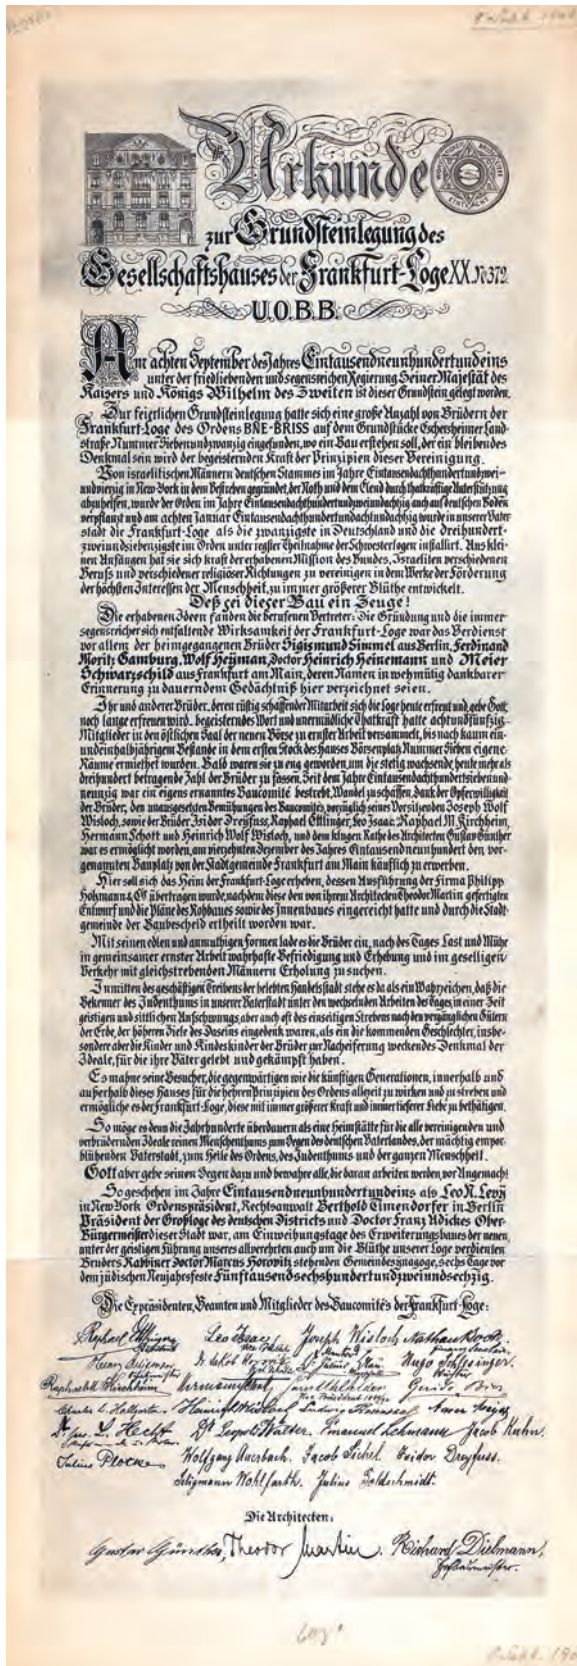 Urkunde
zur Grundsteinlegung des
Gesellschaftshauses der Frankfurt-Loge XX. No 372.
U.O.B.B.
Am achten September des Jahres Eintausendneunhundertundeins
unter der friedliebenden und segensreichen Regierung Seiner Majestät des
Kaisers und Königs Wilhelm des Zweiten ist dieser Grundstein gelegt worden.
Zur feierlichen Grundsteinlegung hatte sich eine große Anzahl von Brüdern der
Frankfurt-Loge des Ordens BNE-BRISS auf dem Grundstücke Eschersheimer Land-
straße Nummer Siebenundzwanzig eingefunden, wo ein Bau erstehen soll, der ein bleibendes
Denkmal sein wird der begeisternden Kraft der Prinzipien dieser Vereinigung.
Von israelitischen Männern deutschen Stammes im Jahre Eintausendachthundertundzwei-
undvierzig in New-York in dem Bestreben gegründet, der Noth und dem Elend durch thatkräftige Unterstützung
abzuhelfen, wurde der Orden im Jahre Eintausendachthundertundzweiundachtzig auch auf deutschen Boden
verpflanzt und am achten Januar Eintausendachthundertundachtundachtzig wurde in unserer Vater
stadt die Frankfurt-Loge als die zwanzigste in Deutschland und die dreihundert-
zweiundsiebenzigste im Orden unter regster Theilnahme der Schwesterlogen installirt. Aus klei-
nen Anfängen hat sie sich kraft der erhabenen Mission des Bundes, Israeliten verschiedenen
Berufs und verschiedener religiöser Richtungen zu vereinigen in dem Werke der Förderung
der höchsten Interessen der Menschheit, zu immer größerer Blüthe entwickelt.
Deß sei dieser Bau ein Zeuge!
Die erhabenen Ideen fanden die berufenen Vertreter: Die Gründung und die immer
segensreicher sich entfaltende Wirksamkeit der Frankfurt-Loge war das Verdienst
vor allem der heimgegangenen Brüder Sigismund Simmel aus Berlin, Ferdinand
Moritz Gamburg, Wolf Heyman, Doctor Heinrich Heinemann und Meier
Schwarzschild aus Frankfurt am Main, deren Namen in wehmütig dankbarer
Erinnerung zu dauerndem Gedächtniß hier verzeichnet seien.
Ihr und anderer Brüder, deren rüstig schaffender Mitarbeit sich die Loge heute erfreut und, gebe Gott,
noch lange erfreuen wird, begeisterndes Wort und unermüdliche Thatkraft hatte achtundfünfzig
Mitglieder in den östlichen Saal der neuen Börse zu ernster Arbeit versammelt, bis nach kaum ein-
undeinhalbjährigem Bestande in dem ersten Stock des Hauses Börsenplatz Nummer Sieben eigene
Räume ermiethet wurden. Bald waren sie zu eng geworden, um die stetig wachsende, heute mehr als
dreihundert betragende Zahl der Brüder zu fassen. Seit dem Jahre Eintausendachthundertsiebenund
neunzig war ein eigens ernanntes Baucomité bestrebt, Wandel zu schaffen, dank der Opferwilligkeit
der Brüder, den unausgesetzten Bemühungen des Baucomités, vorzüglich seines Vorsitzenden Joseph Wolf
Wisloch, sowie der Brüder Isidor Dreyfuss, Raphael Ettlinger, Leo Isaac, Raphael M. Kirchheim,
Hermann Schott und Heinrich Wolf Wisloch, und dem klugen Rathe des Architecten Gustav Günther
war es ermöglicht worden, am vierzehnten Dezember des Jahres Eintausendneunhundert den vor-
genannten Bauplatz von der Stadtgemeinde Frankfurt am Main käuflich zu erwerben.
Hier soll sich das Heim der Frankfurt-Loge erheben, dessen Ausführung der Firma Philipp
Holzmann & Co übertragen wurde, nachdem diese den von ihrem Architecten Theodor Martin gefertigten
Entwurf und die Pläne des Rohbaues sowie des Innenbaues eingereicht hatte und durch die Stadt-
gemeinde der Baubescheid ertheilt worden war.
Mit seinen edlen und anmuthigen Formen lade es die Brüder ein, nach des Tages Last und Mühe
in gemeinsamer ernster Arbeit wahrhafte Befriedigung und Erhebung und im geselligen
Verkehr mit gleichstrebenden Männern Erholung zu suchen.
Inmitten des geschäftigen Treibens der belebten Handelsstadt stehe es da als ein Wahrzeichen, daß die
Bekenner des Judenthums in unserer Vaterstadt unter den wechselnden Arbeiten des Tages, in einer Zeit
geistigen und sittlichen Aufschwungs, aber auch oft des einseitigen Strebens nach den vergänglichen Gütern
der Erde, der höheren Ziele des Daseins eingedenk waren, als ein die kommenden Geschlechter, insbe-
sondere aber die Kinder und Kindeskinder der Brüder zur Nacheiferung weckendes Denkmal der
Ideale, für die ihre Väter gelebt und gekämpft haben.
Es mahne seine Besucher, die gegenwärtigen wie die künftigen Generationen, innerhalb und
außerhalb dieses Hauses für die hehren Prinzipien des Ordens allezeit zu wirken und zu streben und
ermögliche es der Frankfurt-Loge, diese mit immer größerer Kraft und immer tieferer Liebe zu bethätigen.
So möge es denn die Jahrhunderte überdauern als eine Heimstätte für die alle vereinigenden und
verbrüdernden Ideale reinen Menschenthums zum Segen des deutschen Vaterlandes, der mächtig empor-
blühenden Vaterstadt, zum Heile des Ordens, des Judenthums und der ganzen Menschheit.
Gott aber gebe seinen Segen dazu und bewahre alle, die daran arbeiten werden, vor Ungemach!
So geschehen im Jahre Eintausendneunhundertundeins als Leo N. Levy
in New York Ordenspräsident, Rechtsanwalt Berthold Timendorfer in Berlin
Präsident der Großloge des deutschen Districts und Doctor Franz Adickes Ober-
Bürgermeister dieser Stadt war, am Einweihungstage des Erweiterungsbaues der neuen,
unter der geistigen Führung unseres allverehrten auch um die Blüthe unserer Loge verdienten
Bruders Rabbiner Doctor Marcus Horovitz stehenden Gemeindesynagoge, sechs Tage vor
dem jüdischen Neujahrsfeste Fünftausendsechshundertundzweiundsechzig.
Die Expräsidenten, Beamten und Mitglieder des Baucomités der Frankfurt-Loge:
Raphael Ettlinger Leo Isaac Joseph Wisloch Nathan
Dr. Jakob Horovitz Dr. Julius Hugo Schlesinger
Raphael M. Kirchheim Hermann Schott Guido
Charles L. Hallgarten Heinrich Wisloch Ludwig
Dr. L. Hecht Dr Leopold Walter. Emanuel Lehmann Jacob Kuhn.
Julius Plotke Wolfgang Auerbach. Jacob Sichel Isidor Dreyfuss.
Seligmann Wohlfarth. Julius Goldschmidt.
Die Architecten:
Gustav Günther, Theodor Martin. Richard Dielmann,